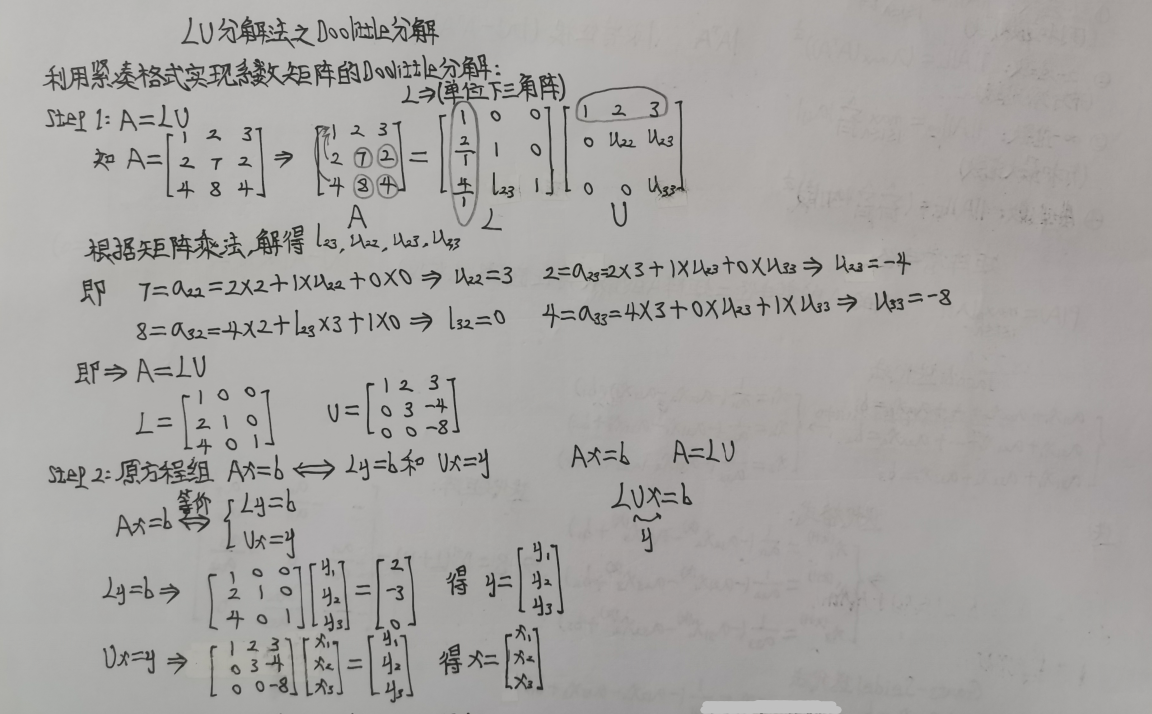 LU分解法之Doolittle分解
利用紧凑格式实现系数矩阵的Doolittle分解:
L⇒(单位下三角阵)
Step 1: A=LU
知 A=[1 2 3; 2 7 2; 4 8 4] ⇒ [1 2 3; 2 7 2; 4 8 4] = [1 0 0; 2/1 1 0; 4/1 l23 1] [1 2 3; 0 u22 u23; 0 0 u33]
A L U
根据矩阵乘法,解得 l23, u22, u23, u33
即 7=a22=2×2+1×u22+0×0 ⇒ u22=3 2=a23=2×3+1×u23+0×u33 ⇒ u23=-4
8=a32=4×2+l23×3+1×0 ⇒ l32=0 4=a33=4×3+0×u23+1×u33 ⇒ u33=-8
即⇒ A=LU
L=[1 0 0; 2 1 0; 4 0 1] U=[1 2 3; 0 3 -4; 0 0 -8]
Step 2: 原方程组 Ax=b ⟺ Ly=b 和 Ux=y Ax=b A=LU
Ax=b 等价⟺ { Ly=b LUx=b
Ux=y y
Ly=b ⇒ [1 0 0; 2 1 0; 4 0 1] [y1; y2; y3] = [2; -3; 0] 得 y=[y1; y2; y3]
Ux=y ⇒ [1 2 3; 0 3 -4; 0 0 -8] [x1; x2; x3] = [y1; y2; y3] 得 x=[x1; x2; x3]